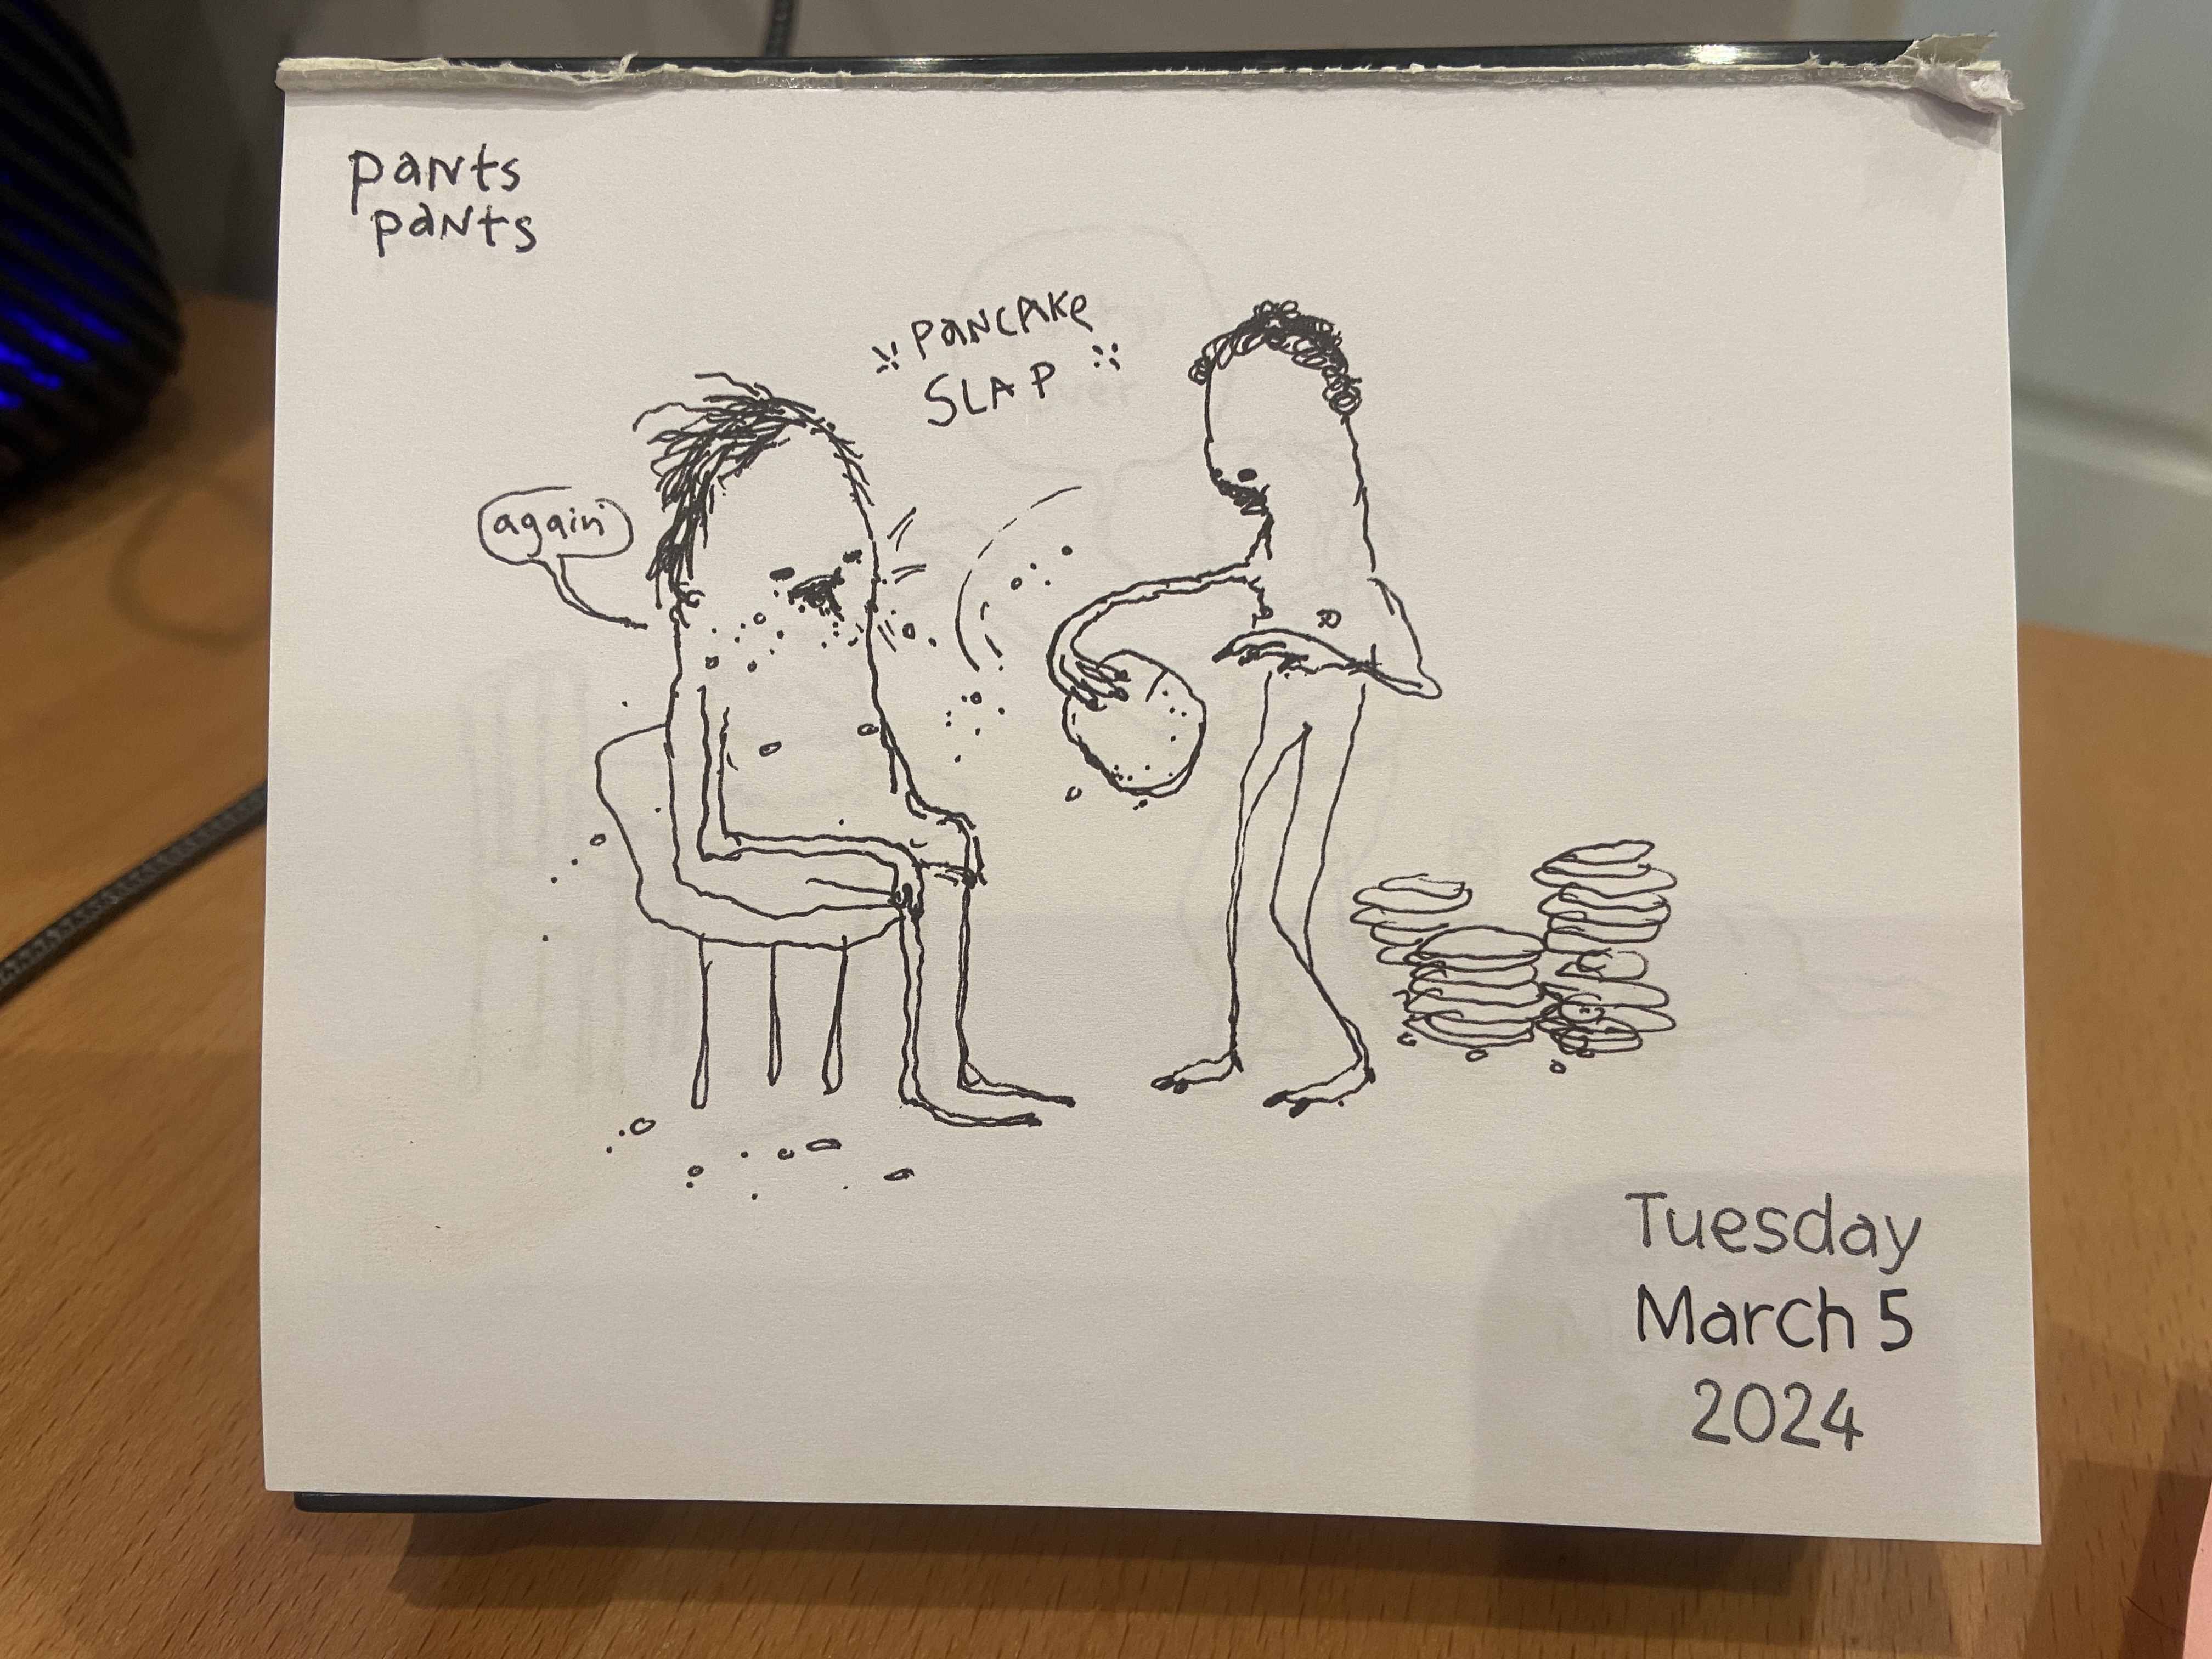 pants
pants
PANCAKE
SLAP
again
Tuesday
March 5
2024